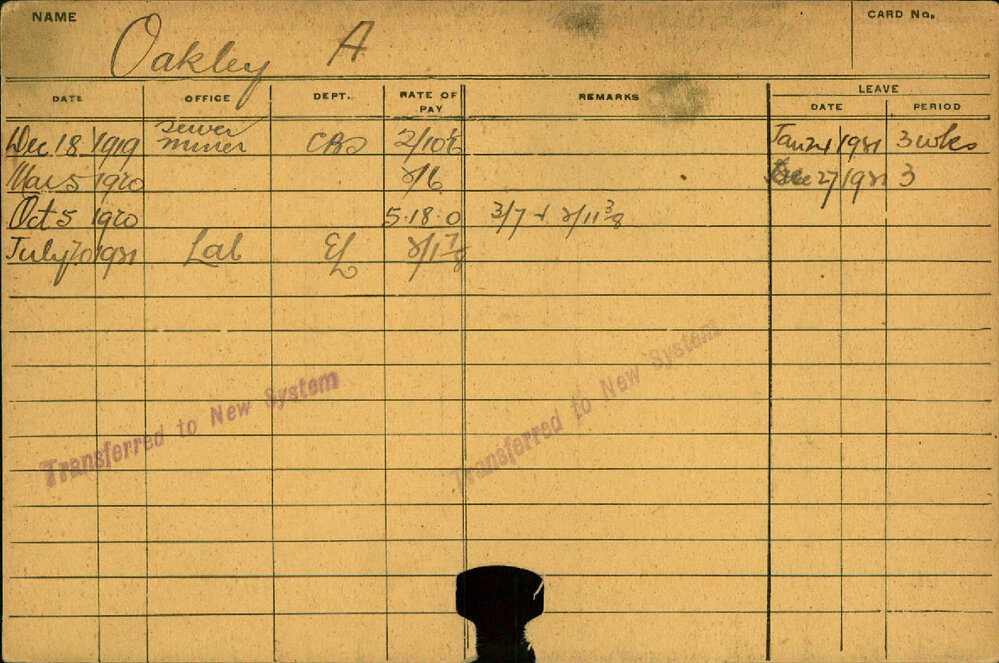 NAME
CARD No.
Oakley A
DATE OFFICE DEPT. RATE OF PAY REMARKS LEAVE
DATE PERIOD
Dec 18 1919 Sewer miner 2/10½ Jan 24 1921 3 wks
Mar 5 1920 27 1921 3
Oct 5 1920 5.18.0 3/7 2/11⅜
July 1921 Lab EL 2/1⅞
Transferred to New System
Transferred to New System